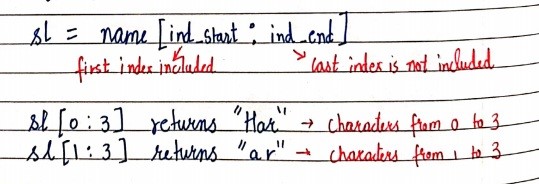 sl = name [ind_start : ind_end]
first index included last index is not included
sl [0 : 3] returns "Har" → characters from 0 to 3
sl [1 : 3] returns "ar" → characters from 1 to 3